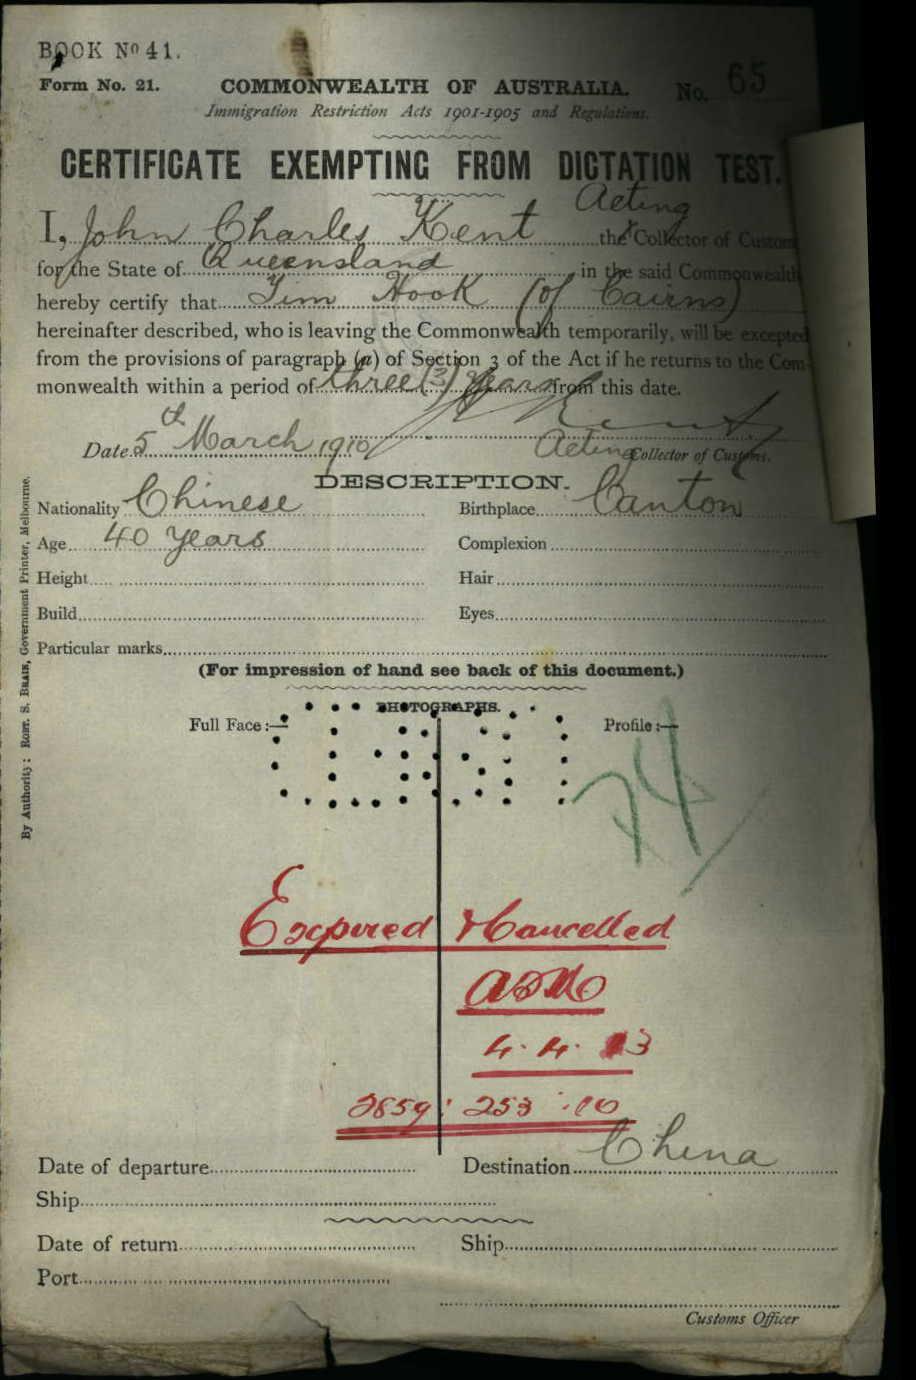 BOOK No 41.
Form No. 21.
COMMONWEALTH OF AUSTRALIA.
No. 65
Immigration Restriction Acts 1901-1905 and Regulations.
CERTIFICATE EXEMPTING FROM DICTATION TEST.
Acting
I, John Charles Kent the Collector of Custom
for the State of Queensland in the said Commonwealth
hereby certify that Tim Hook (of Cairns)
hereinafter described, who is leaving the Commonwealth temporarily, will be excepted
from the provisions of paragraph (a) of Section 3 of the Act if he returns to the Com-
monwealth within a period of three (3) years from this date.
J C Kent
Date 5th March 1910 Acting Collector of Customs.
DESCRIPTION.
Nationality Chinese Birthplace Canton
Age 40 years Complexion
Height Hair
Build Eyes
Particular marks
(For impression of hand see back of this document.)
PHOTOGRAPHS.
Full Face:— Profile:—
74
Expired & Cancelled
4. 4. 13
2859: 253 .10
Date of departure Destination China
Ship
Date of return Ship
Port
Customs Officer
By Authority: ROBT. S. BRAIN, Government Printer, Melbourne.